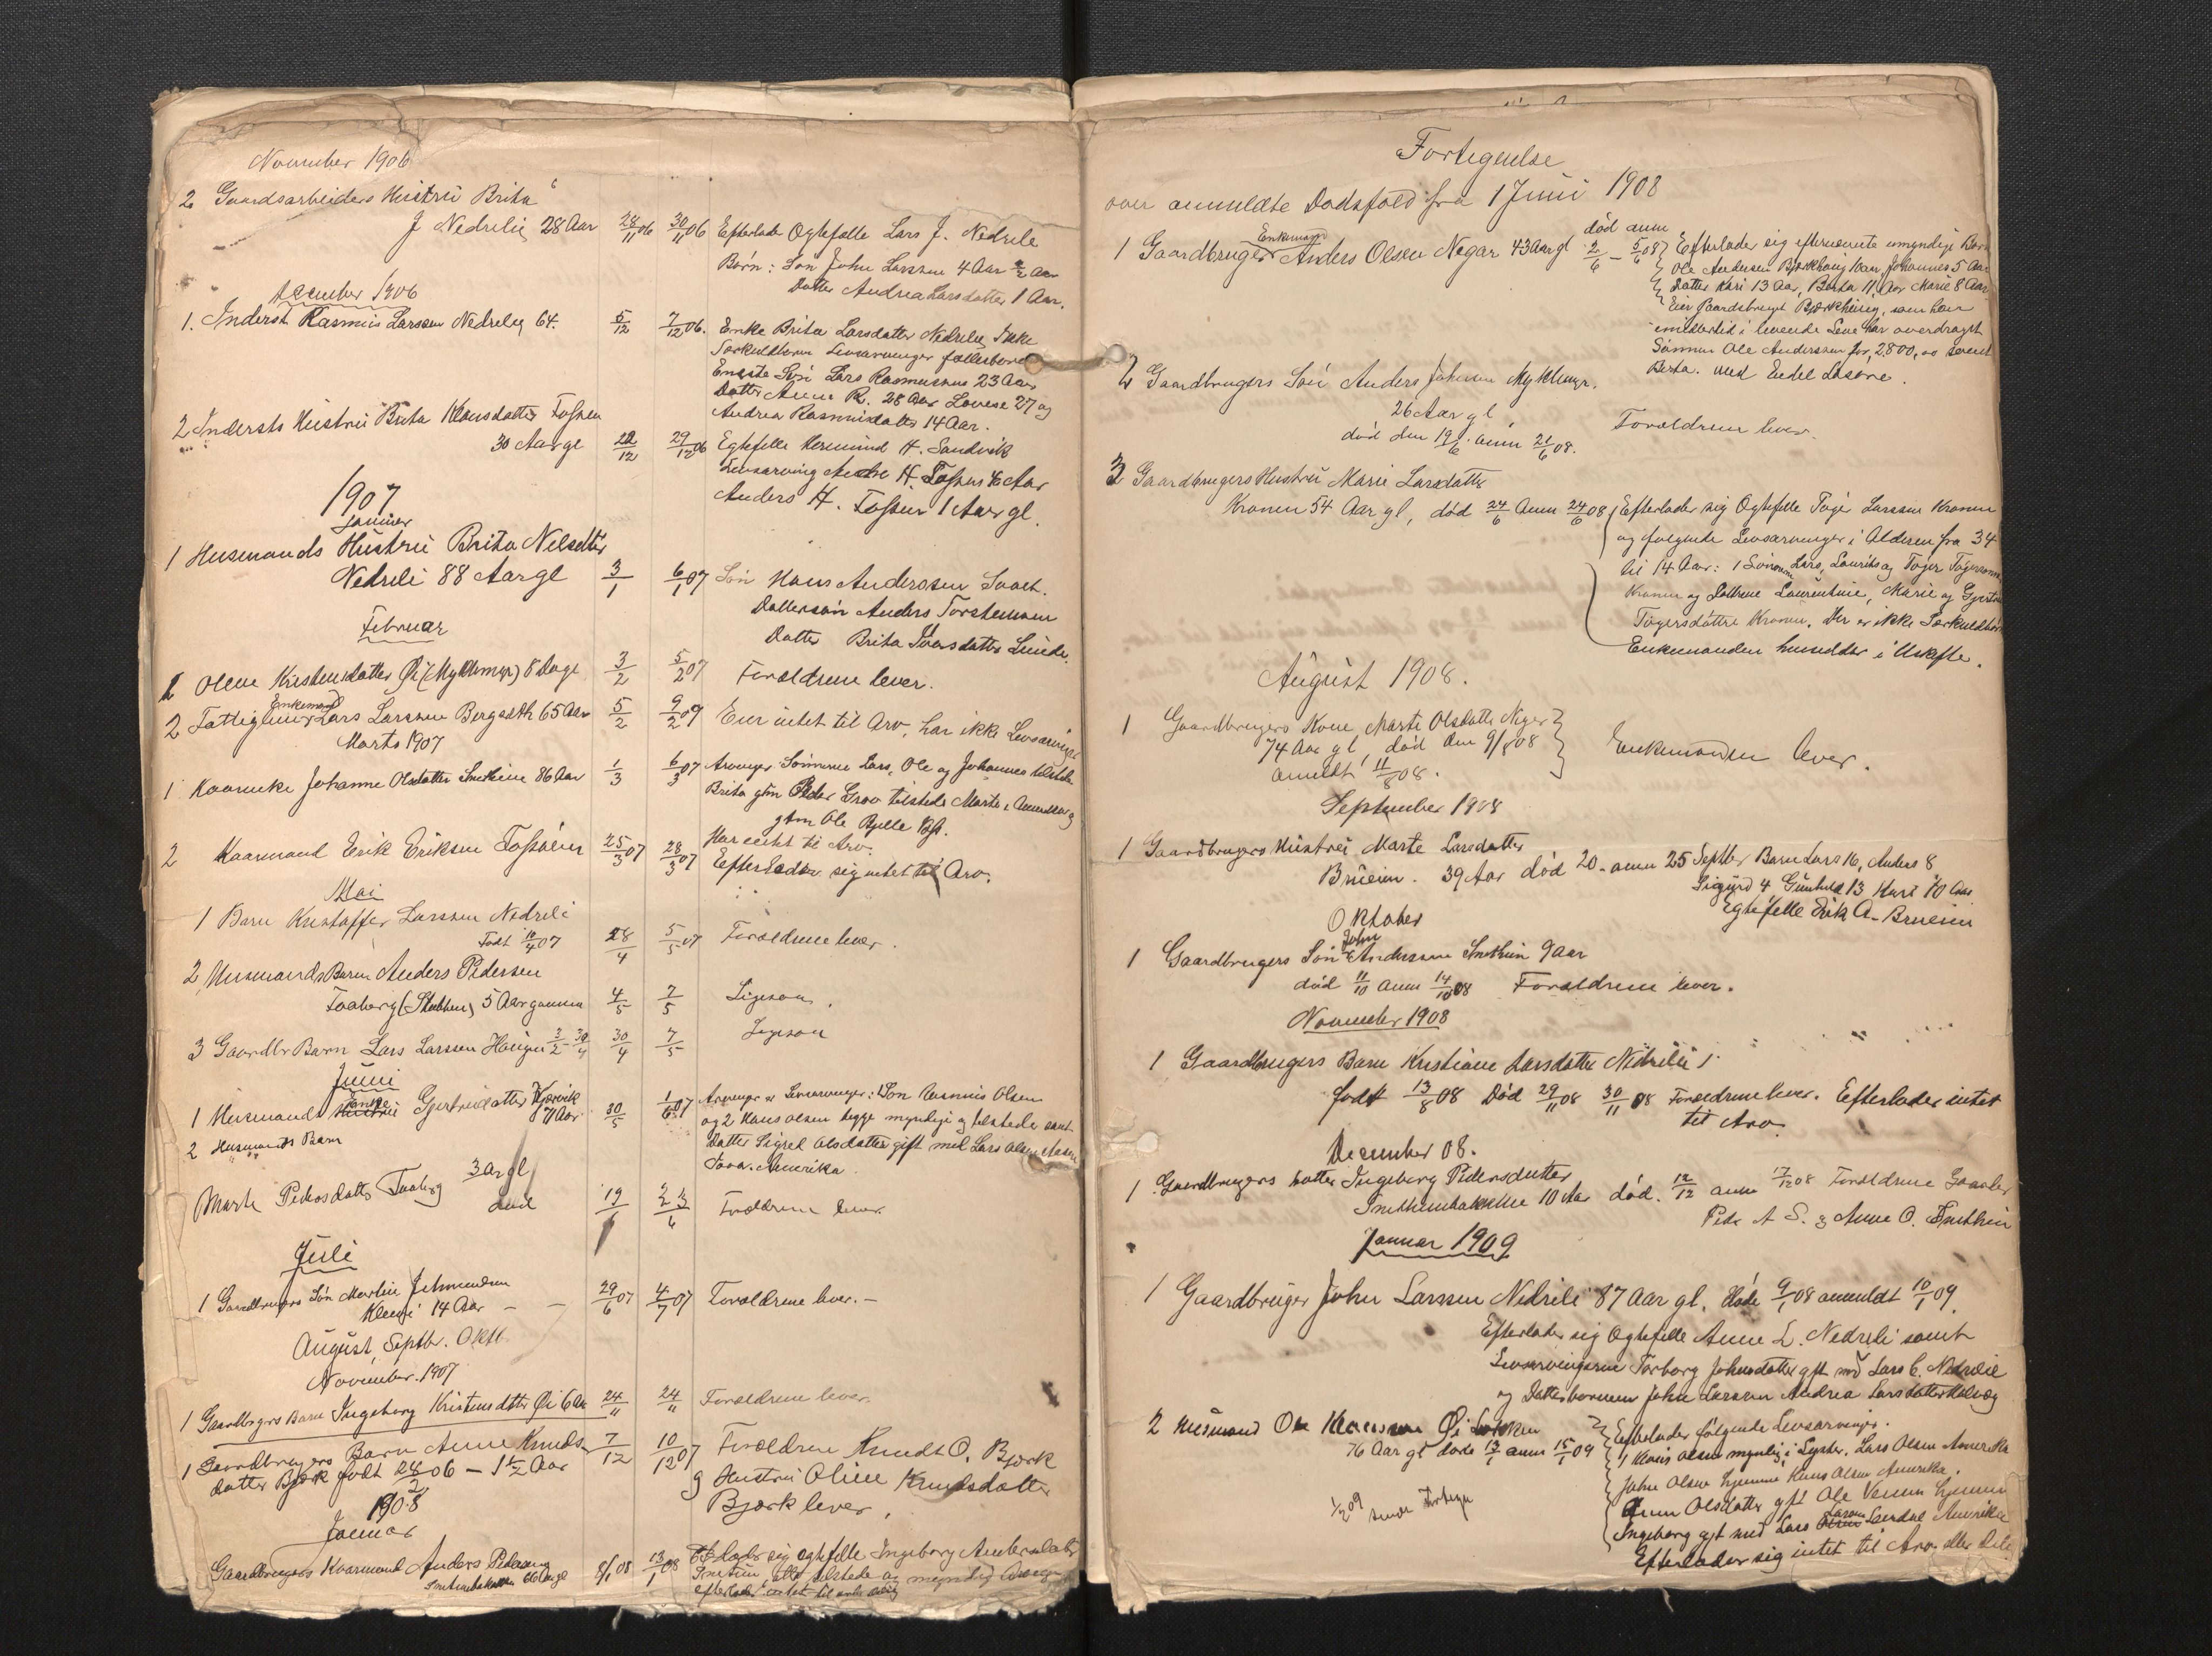 November 1906
2 Gaardsarbeiders Hustru Brita
J Nedrelie 28 Aar 28/11 06 30/11 06 Efterlader Ægtefælle Lars J. Nedrele
Børn: Søn John Larssen 4 Aar
Datter Andrea Larsdatter 1 Aar.
December 1906
1. Inderst Rasmus Larssen Nedrelie 64. 5/12 7/12 06. Enke Brita Larsdatter Nedrelie, Ikke
Særkuldbørn Livsarvinger fællesbørn
Eneste Søn Lars Rasmussen 23 Aar
Datter Anne R. 28 Aar Lovise 27 og
Andrea Rasmusdatter 14 Aar.
2 Indersts Hustru Brita Klausdatter Fossen
30 Aar gl 22/12 29/12 06 Egtefelle Hermund H. Sandvik
Livsarving H. Fossen 4 Aar
Anders H. Fossen 1 Aar gl.
1907
Januar
1 Husmands Hustru Brita Nilsdtter
Nedreli 88 Aar gl 3/1 6/1 07 Søn Hans Anderssen
Dattersøn Anders Torstensen
Datter Brita Iversdatter Linde.
Februar
1 Oline Kristensdatter Øi (Myklemyr) 8 Dage 3/2 5/2 07 Forældrene lever.
Enkemand
2 Fattiglem Lars Larssen Bergseth 65 Aar 5/2 9/2 07 Eier intet til Arv, har ikke Livsarvinger
Marts 1907
1 Kaarenke Johanne Olsdatter Snethun 86 Aar 1/3 6/3 07 Arvinger Sønnene Lars, Ole og Johannes tilstede
Brita gtm Peder Grov tilstede Marta i Amerika og
gtm Ole Bjelle
Har intet til Arv.
2 Kaarmand Erik Eriksen Fossøien 25/3 07 28/3 07 Efterlader sig intet til Arv.
Mai
1 Barn Kristoffer Larssen Nedreli
Født 10/4 07 28/4 5/5 07 Forældrene lever.
2 Husmands Barn Anders Pedersen
Faaberg (Stubben) 5 Aar gammel 4/5 7/5 Ligesom.
3 Gaardbr Barn Lars Larssen Haugen 3/2 - 30/4 30/4 7/5 Ligesom
Juni
Enke
1 Husmands Hustru Gjertrudatter Kjærvik
87 Aar 30/5 1/6 07 Arvinger er Livsarvinger: 1 Søn Rasmus Olsen
og 2 Hans Olsen begge myndige og tilstede samt
Datter Sigrid Olsdatter gift med Lars Olsen Aasen
Amerika.
2 Husmands Barn
Marte Pedersdatter Faaberg 3 Ar gl
død 19/6 23/6 Forældrene lever
Juli
1 Gaardbrugers Søn Martin Johannessen
14 Aar – – 29/6 07 4/7 07 Forældrene lever. –
August, Septbr. Oktb.
November. 1907
1 Gaardbrgrs Barn Ingeborg Kristensdatter Øi 6 Aar 24/11 24/11 Forældrene lever.
1 Gaardbrugers Barn Anne Knuds-
datter Bjørk født 28/2 06 – 1 1/2 Aar 7/12 10/12 07 Forældrene Knudt O. Bjørk
og Hustru Oline Knudsdatter
Bjørk lever.
1908
Januar
Gaardbrugers Kaarmand Anders Pedersen
Snetunbakken 66 Aar gl 8/1 08 13/1 08 Efterlader sig egtefelle Ingeborg Andersdatter
Snetun, alle tilstede og myndig Arvinger
efterlader intet til
Fortegnelse
over anmeldte Dødsfald fra 1 Juni 1908
død anm
Enkemand
1 Gaardbruger Anders Olsen Negar 43 Aar gl 2/6 – 5/6 08 Efterlader sig efternevnte umyndige Børn
Ole Andersen Bjørkhaug 10 aar, Johannes 5 Aar
Datter Kari 13 Aar, Berta 11 Aar Marie 8 Aar
Eier Gaardsbruget Bjørkhaug, som han
imidlertid i levende Live har overdraget
Sønnen Ole Anderssen for 2800,00
Berta. med Endel Løsøre.
2 Gaardbrugers Søn Anders Johnsen Myklemyr.
26 Aar gl
død den 19/6. anm 21/6 08. Forældrene lever.
3 Gaardbrugers Hustru Marie Larsdatter
Kronen 54 Aar gl, død 24/6 Anm 24/6 08 Efterlader sig Egtefelle Tøger Larssen Kronen
og følgende Livsarvinger i Alderen fra 34
til 14 Aar: Sønnerne Lars, Laurits og Tøger Tøgersønner
Kronen og Døttrene Laurentine, Marie og Gjertine
Tøgersdøttre Kronen. Der er ikke Særkuldbørn
Enkemanden hensidder i Uskifte.
August 1908.
1 Gaardbrugers Kone Marte Olsdatter Negar
74 Aar gl, død den 9/8 08
anmeldt 11/8 08. Enkemanden lever.
September 1908
1 Gaardbrugers Hustru Marte Larsdatter
Brueim. 39 Aar død 20. anm 25 Septber Barn Lars 16, Anders 8
Sigurd 4 Gunhild 13 Kari 10 Aar
Egtefelle Erik A. Brueim
Oktober
John
1 Gaardbrugers Søn Anderssen Snethun 9 aar
død 11/10 anm 14/10 08 Forældrene lever.
November 1908
1 Gaardbrugers Barn Kristiane Larsdatter Nedrelie
født 13/8 08 Død 29/11 08 30/11 08 Forældrene lever. Efterlader intet
til Arv.
December 08.
1 Gaardbrugers Datter Ingeborg Pedersdatter
Snethunbakken 10 Aar død. 12/12 anm 17/12 08 Forældrene Gaardbr
Peder A S. og Anne O. Snethun
Januar 1909
1 Gaardbruger John Larssen Nedreli 87 Aar gl. døde 9/1 08 anmeldt 10/1 09.
Efterlader sig Egtefelle Anne L. Nedreli samt
Livsarvingerne Torborg Johnsdatter gft med Lars C. Nedrelie
og Datterbørnene John Larssen Andrea Larsdatter
2 Husmand Ole Øi
76 Aar gl døde 13/1 anm 15/1 09 Efterlader følgende Livsarvinger.
1 Hans Olsen myndig i Lyster. Lars Olsen Amerika
John Olsen hjemme Hans Olsen Amerika.
Anna Olsdatter gft Ole hjemme
Larsen
Ingeborg gft med Lars Olsen Amerika
Efterlader sig intet til Arv eller Dele
1/2 09